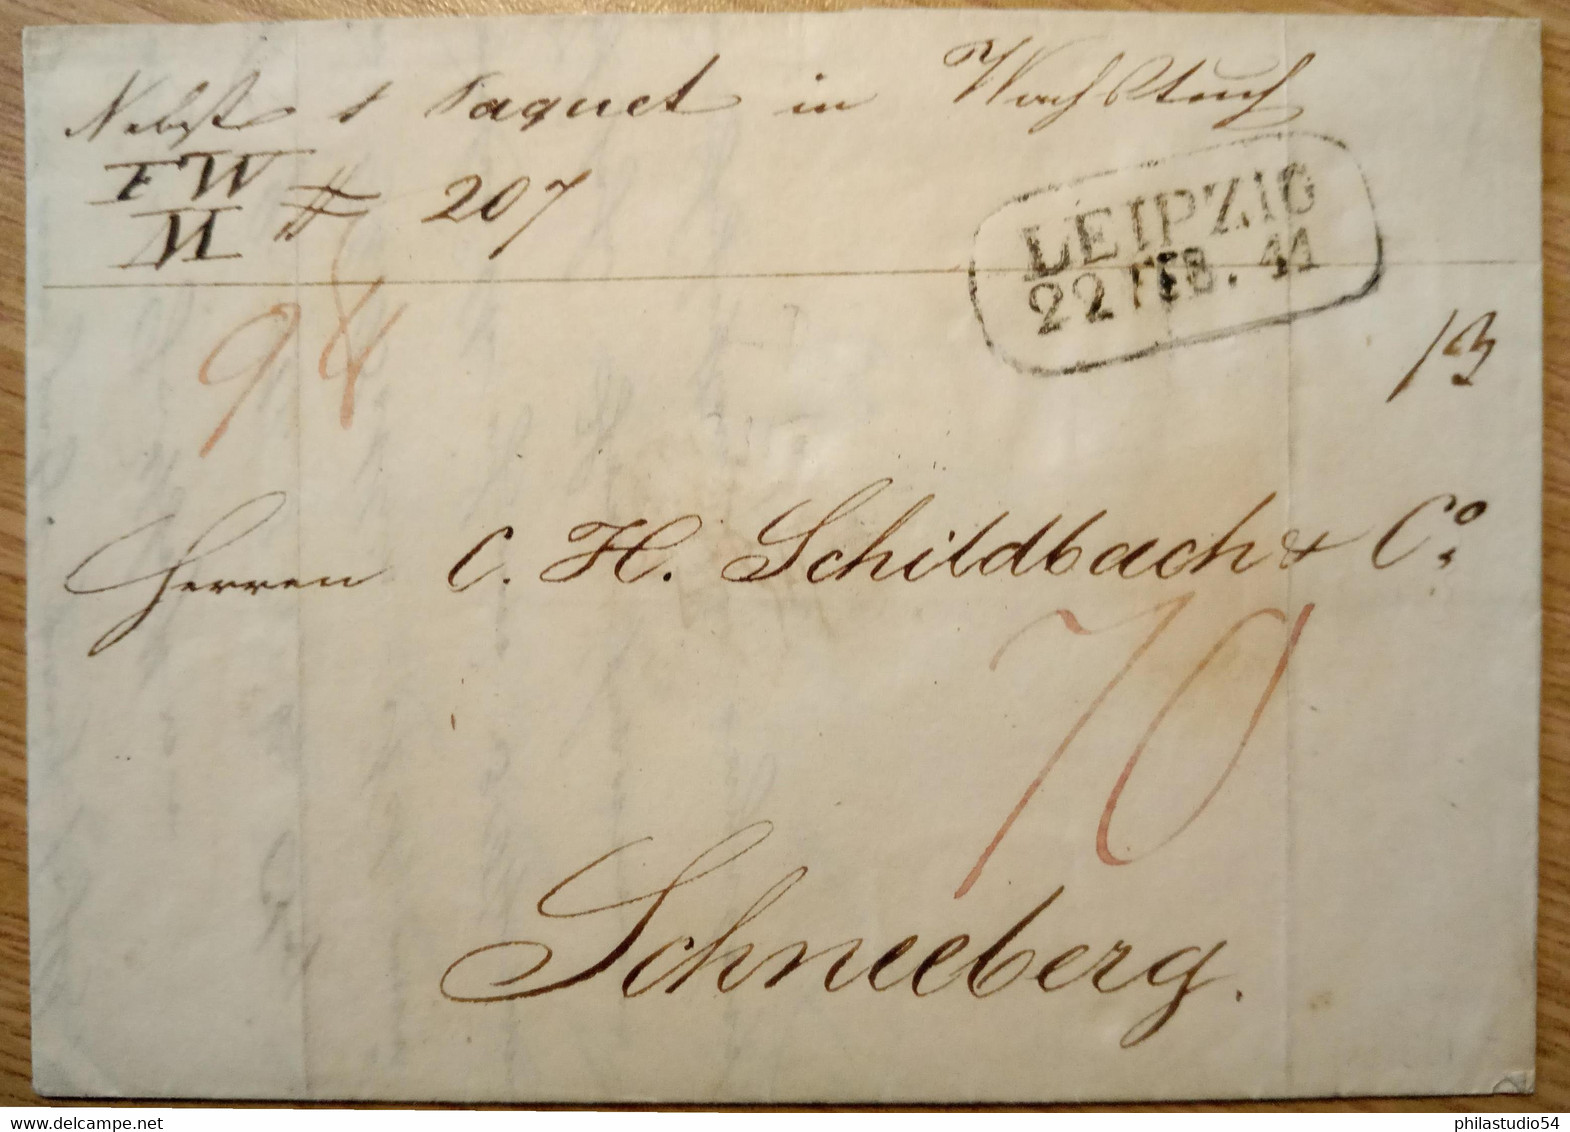 Nebst 1 Paquet in Wachstuch
FW
M # 207
LEIPZIG
22 FEB. 41
98
13
Herren C. H. Schildbach & Co.
70
Schneeberg.
philastudio54